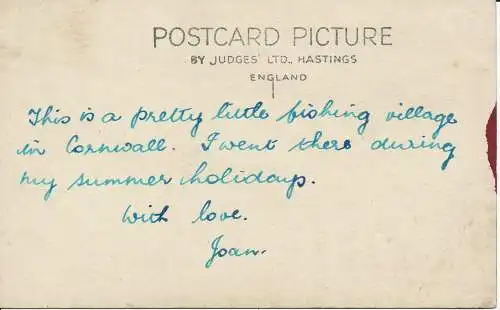 POSTCARD PICTURE
BY JUDGES' LTD., HASTINGS
ENGLAND
This is a pretty little fishing village
in Cornwall. I went there during
my summer holidays.
With love.
Joan.